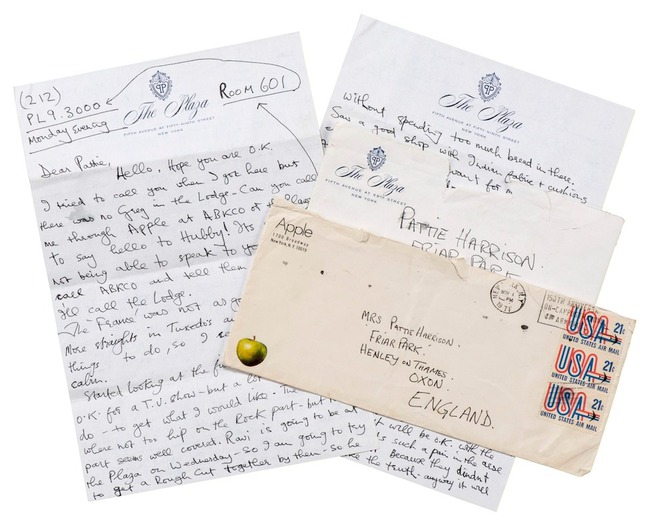 (212)
PL9.3000
Monday Evening
Room 601
The Plaza
FIFTH AVENUE AT FIFTY-NINTH STREET
NEW YORK
Dear Pattie,
Hello, Hope you are O.K.
I tried to call you when I got here but
there was no Grey in the Lodge - Can you call
me through APPLE at ABKCO
to say hello to Hubby! Its
not being able to speak to
call ABKCO and tell them
call the Lodge.
The 'Frames' was not as
More straights in Tuxedos
things to do, so I
calm.
Started looking at the
O.K. for a T.V. show - but a
do - to get what I would like. The
where not too hip on the Rock part - but
part seems well covered. Ravi is going to be at
the Plaza on Wednesday - so I am going to try
to get a Rough Cut together by then - so he
The Plaza
FIFTH AVENUE AT FIFTY-NINTH STREET
NEW YORK
without spending too much bread in there.
Saw a good shop with Indian fabric + cushions
won't for
it will be O.K. with the
is such a pain in the arse
Because they didn't
the truth - anyway it will
The Plaza
FIFTH AVENUE AT FIFTY-NINTH STREET
NEW YORK
PATTIE HARRISON.
FRIAR PARK
Apple
1700 Broadway
New York, N.Y. 10019
MRS PATTIE HARRISON.
FRIAR PARK.
HENLEY ON THAMES.
OXON.
ENGLAND.
USA 21c
UNITED STATES AIR MAIL
USA 21c
UNITED STATES AIR MAIL
USA 21c
UNITED STATES AIR MAIL